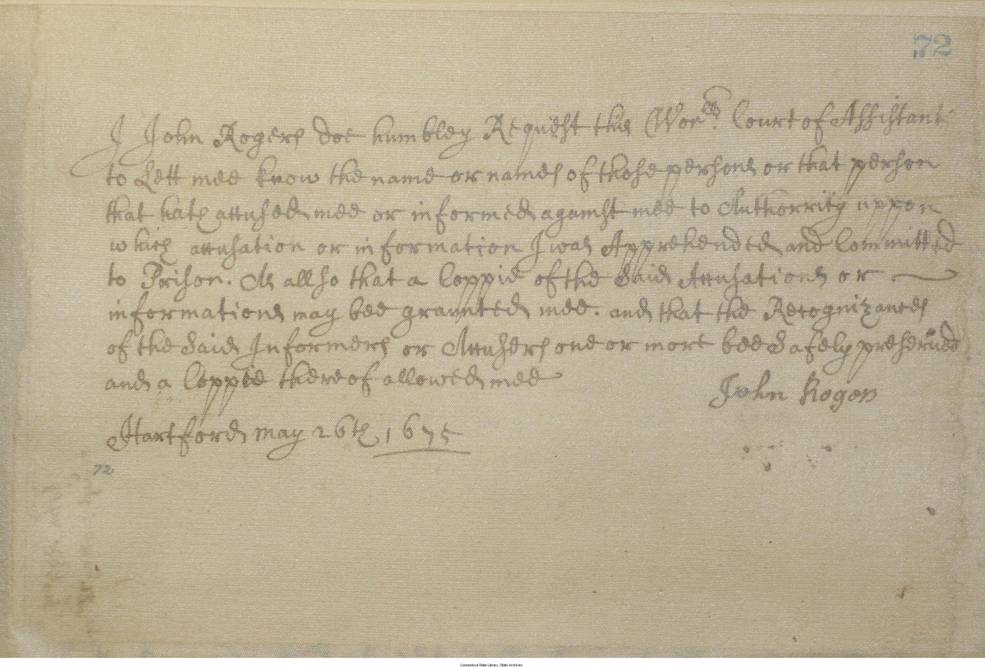 72
I John Rogers doe humbley Request this Wor.ll Court of Assistants
to Lett mee know the name or names of those persons or that person
that hath accused mee or informed against mee to Authorrity uppon
which accusation or information I was Apprehended and Committed
to Prison. As allso that a Coppie of the Said Accusations or
informations may bee graunted mee. and that the Recognizances
of the Said Informers or Accusers one or more bee Safely preserued
and a Coppie thereof allowed mee
John Rogers
Hartford may 26th 1675
72
Connecticut State Library, State Archives